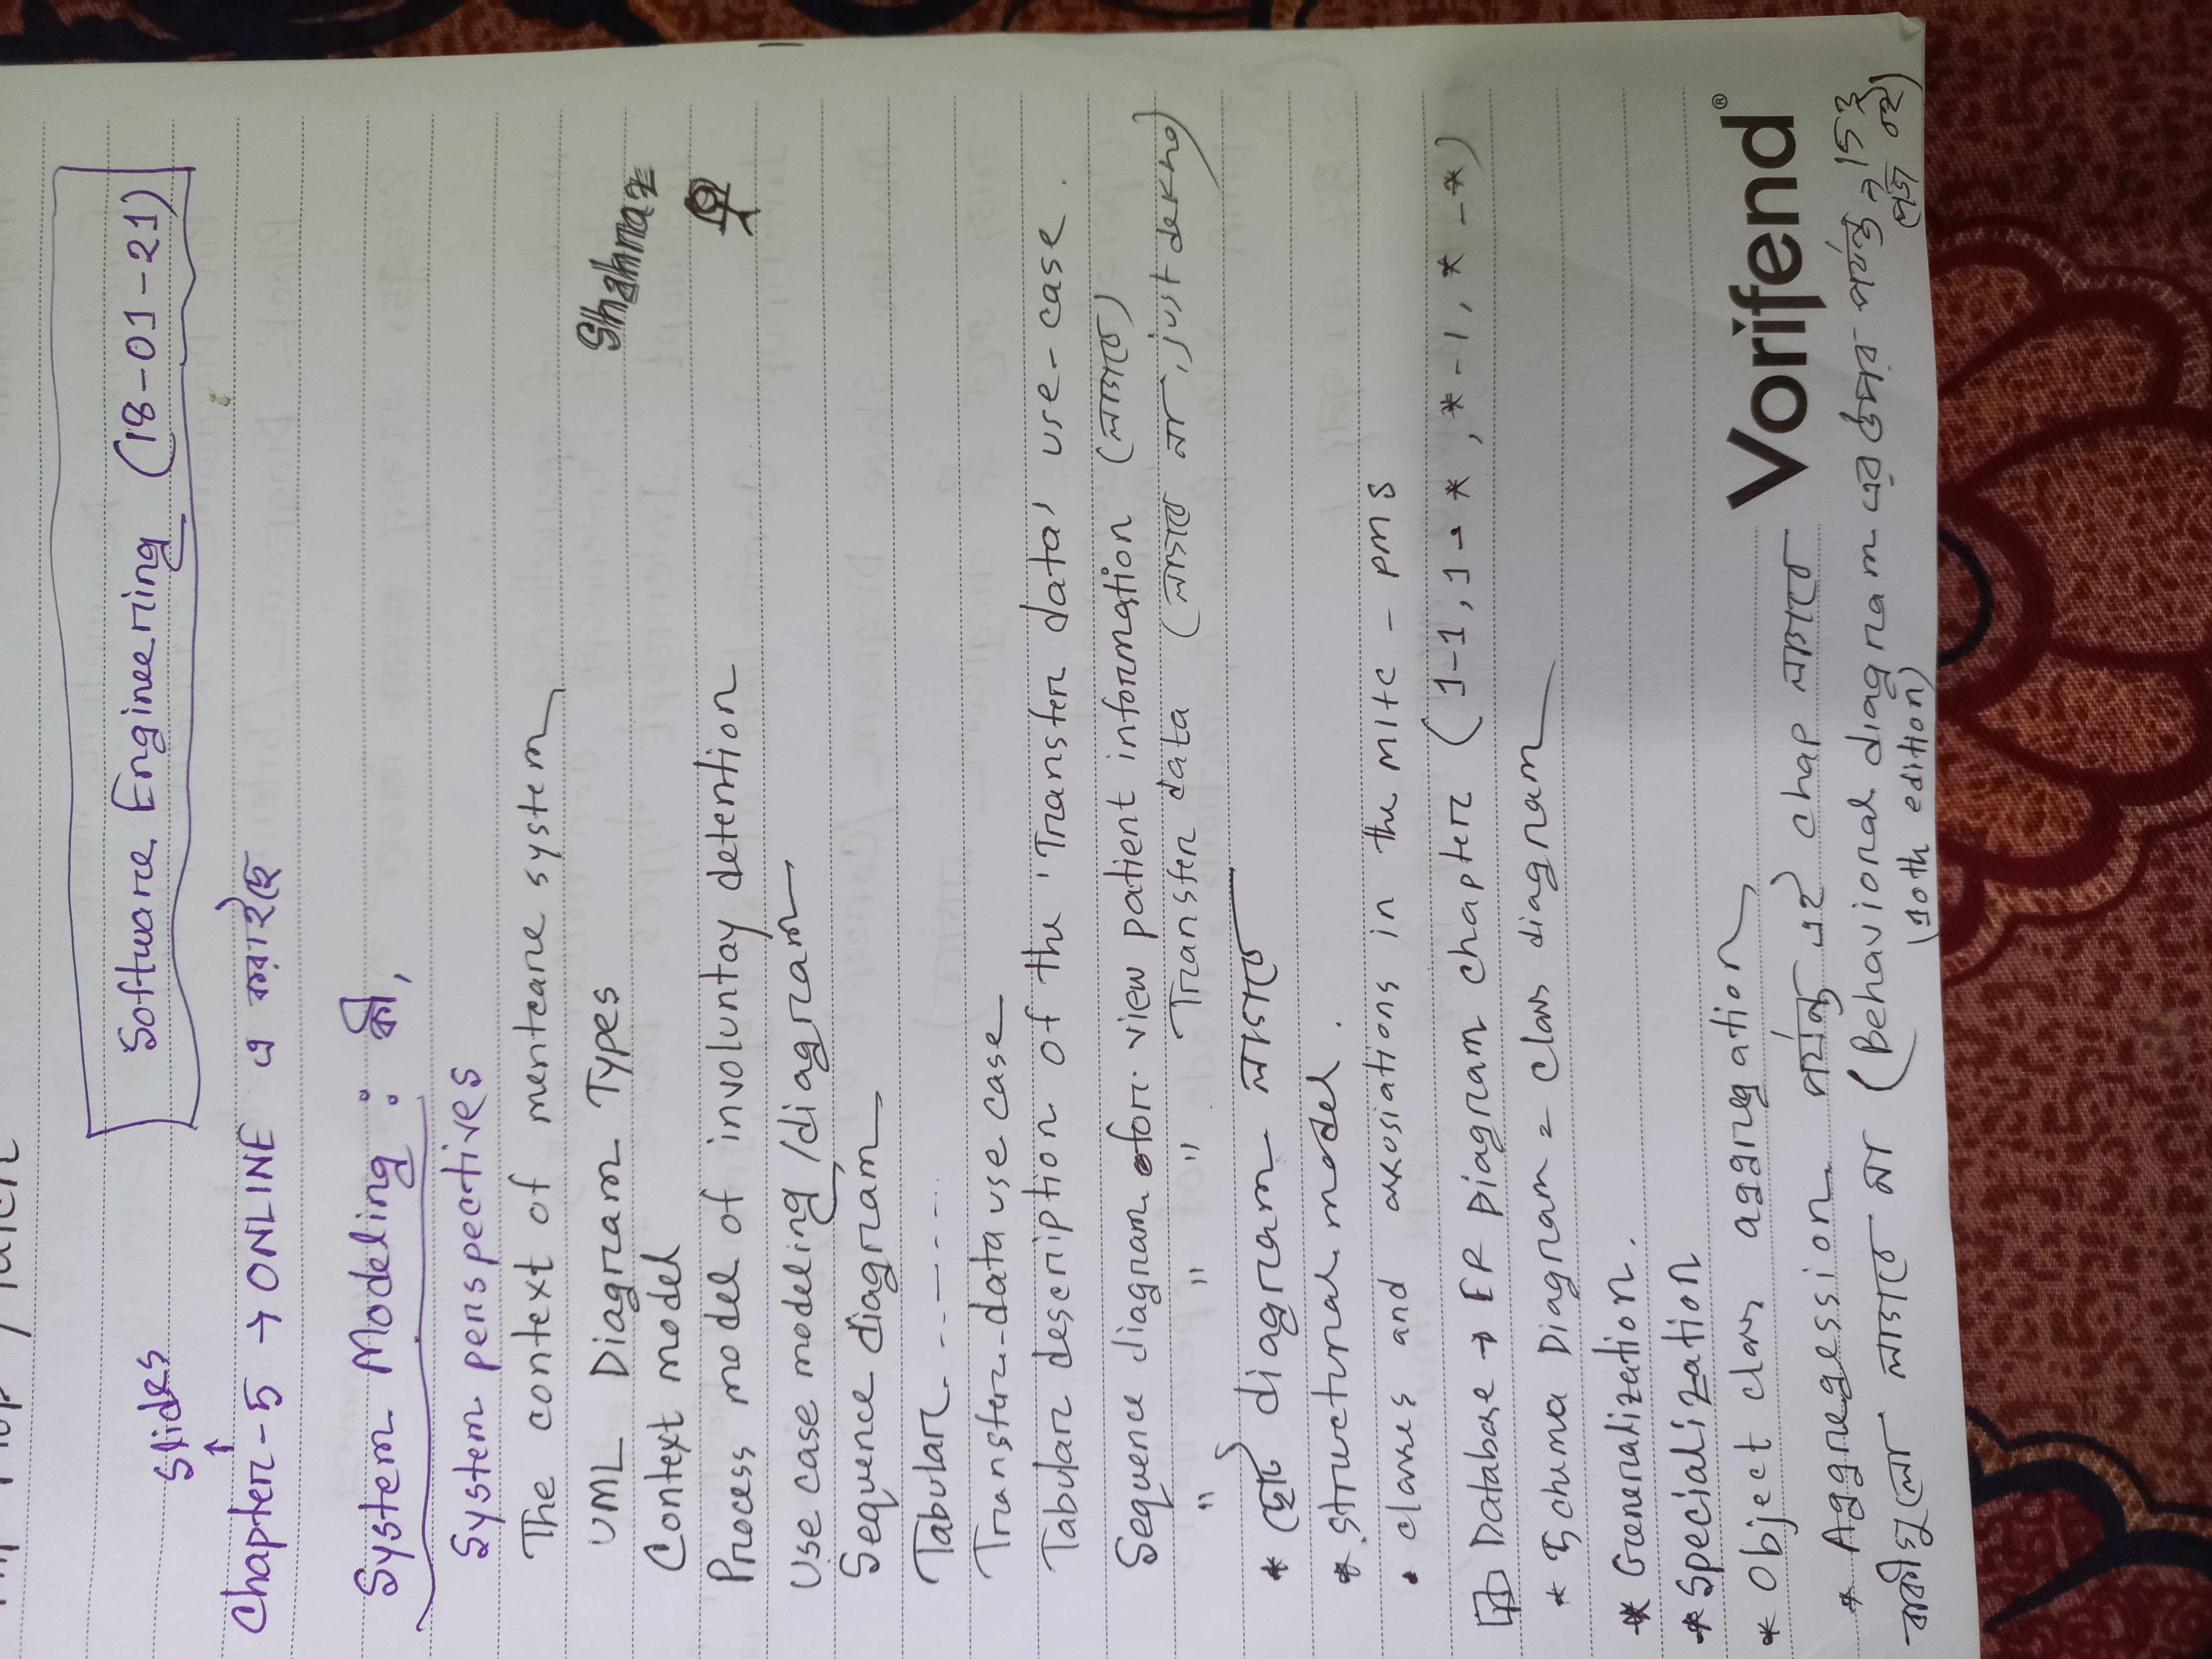 Flip Flop / Latch
Software Engineering (18-01-21)
Slides
↑
Chapter-5 → ONLINE এ করাইছে
System Modeling : কী,
System perspectives
The context of mentcare system
UML Diagram Types
Shahnaz
Context model
Process model of involuntay detention
Use case modeling /diagram
Sequence diagram
Tabular - -- — - - -
Transfer-data use case
Tabular description of the 'Transfer data' use-case.
Sequence diagram for view patient information (লাগবে)
" " " Transfer data (লাগবে না, just dekho)
* ছোট diagram লাগবে
* structural model.
• classes and assosiations in the MHC - PMS
Database → ER Diagram chapter (1-1, 1-*, *-1, *-*)
* Schema Diagram = Class diagram
* Generalization.
* Specialization
* Object class aggregation
* Aggregession পর্যন্ত এই chap লাগবে
Vorifend®
বাকীগুলো লাগবে না (Behavioral diagram এর উপর পর্যন্ত, 153 পেজ বই)
(10th edition)